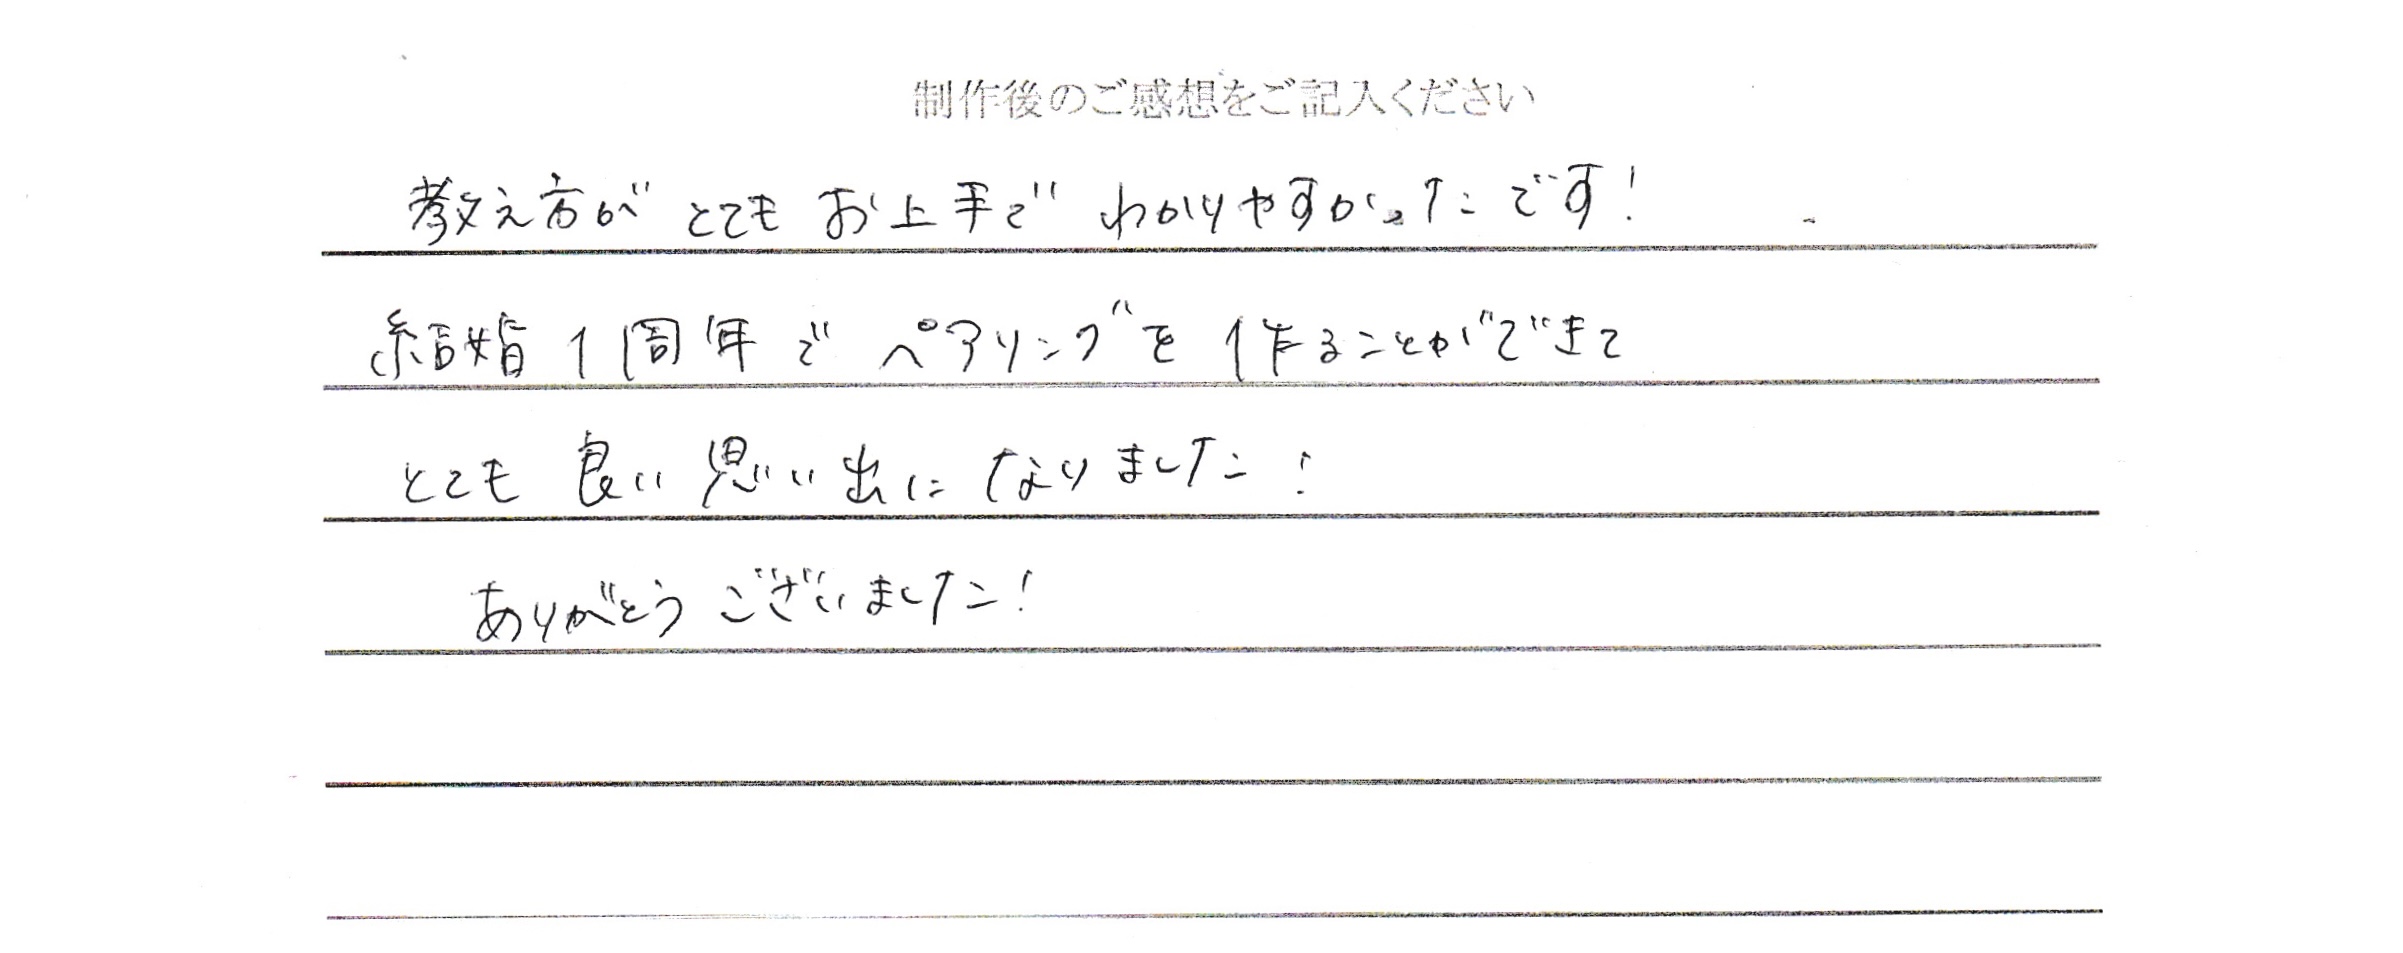 制作後のご感想をご記入ください
教え方が とても お上手で わかりやすかったです!
結婚1周年で ペアリングを 作ることができて
とても 良い 思い出に なりました!
ありがとう ございました!